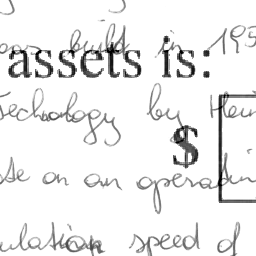 build in 195
assets is:
Technology by Hein
$
te on an operatin
ulation speed of